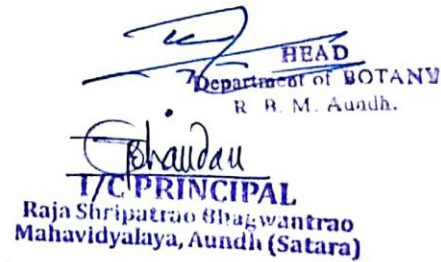 HEAD
Department of BOTANY
R. B. M. Aundh.
I/C PRINCIPAL
Raja Shripatrao Bhagwantrao
Mahavidyalaya, Aundh (Satara)